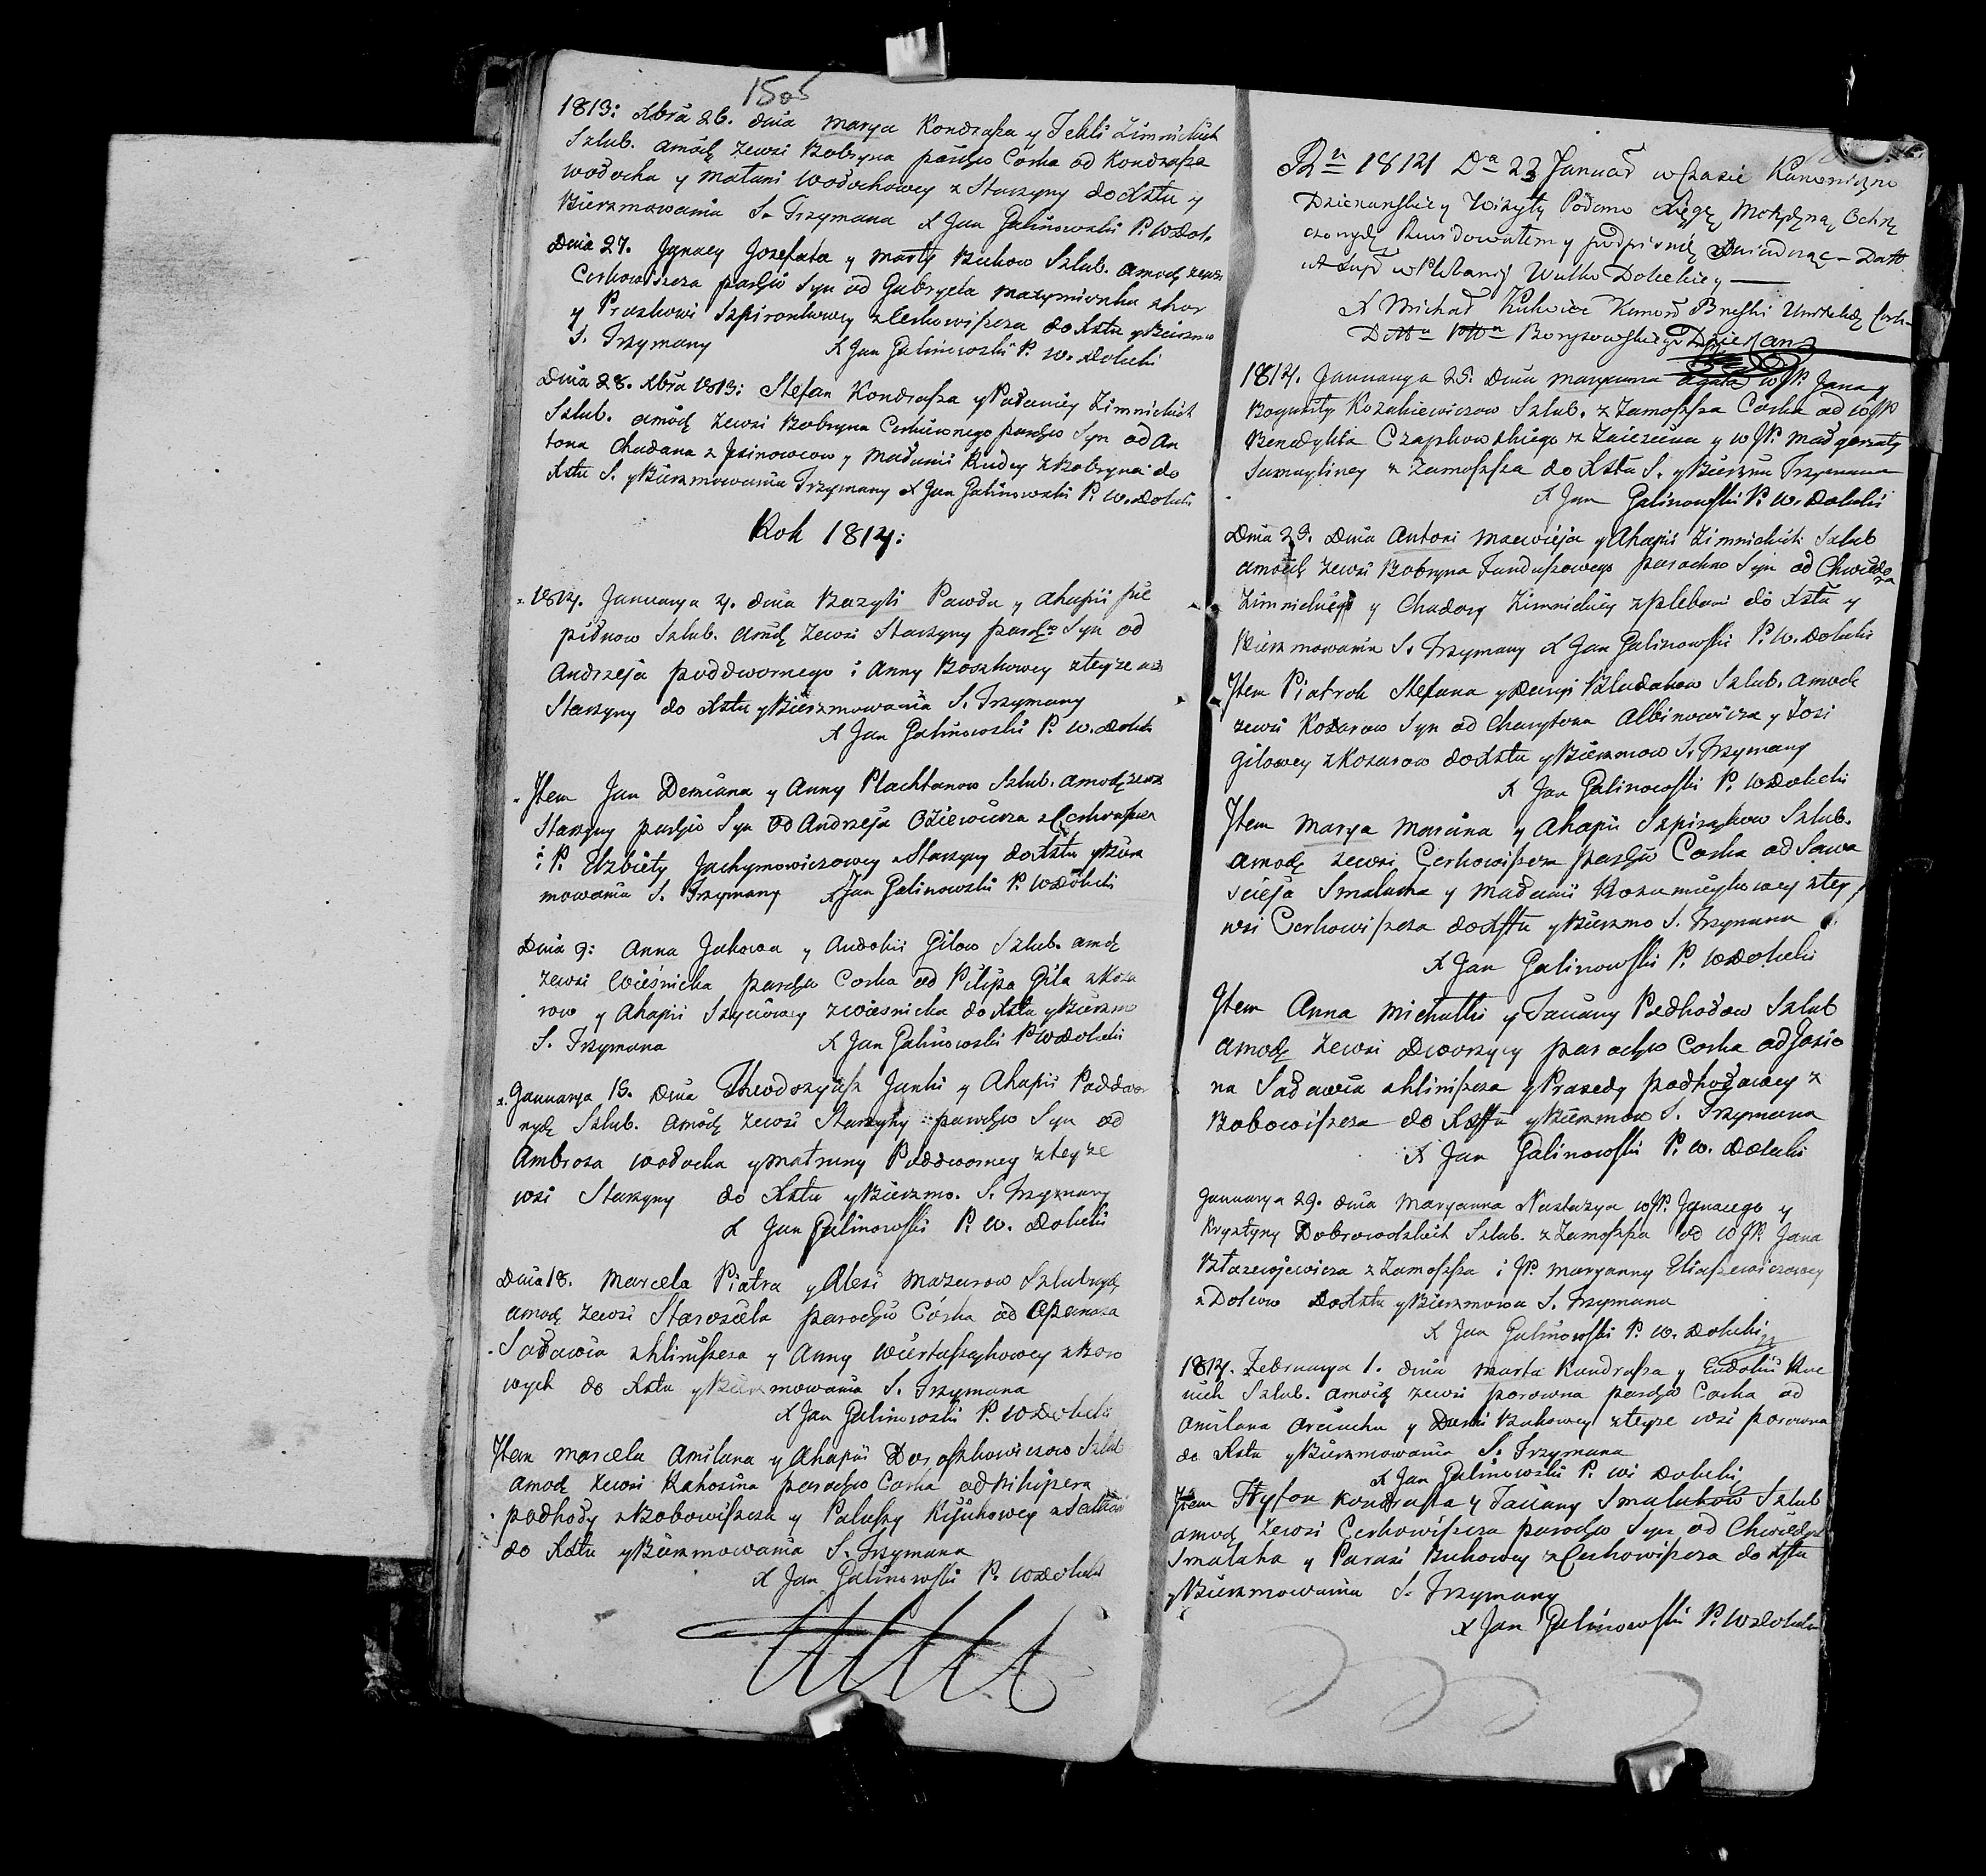 150
1813: Xbra 26. dnia Marya Kondrasza y Tekli Zimnickich
Szlub. amodę zewsi Bobryna parchjo Corka od Kondrasza
Wołocha y Matuni Wołochowey z Staryzny do Xstu y
Bierzmowania S. Trzymana X Jan Galinowski P. W. Dol.
Dnia 27. Jgnacy Jozefata y Marty Bukow Szlub. amodę zewsi
Cerkowiszcza parchjo Syn od Gabryela
y Praskowi Szpironkowey z Cerkowiszcza do Xstu y Bierzmo
S. Trzymany X Jan Galinowski P. W. Dolecki
Dnia 28. Xbra 1813: Stefan Kondrasza y Pałaniey Zimnickich
Szlub. amodę zewsi Bobryna Cerkiewnego parchjo Syn od An
tona Chadana z y Małanii Rudey z Bobryna do
Xstu S. y Bierzmowania Trzymany X Jan Galinowski P. W. Dolecki
Rok 1814:
1814. Januarya 4. dnia Bazyli Pawła y Ahapii Pile
pidnow Szlub. amodę zewsi Staryzny parchjo Syn od
Andrzeja poddwornego i Anny Boszkowey zteyże wsi
Staryzny do Xstu y Bierzmowania S. Trzymany
X Jan Galinowski P. W. Dolecki
Jtem Jan Demiana y Anny Plachtanow Szlub. amodę zewsi
Staryzny parchjo Syn od Andrzeja z Cerkowiszcza
i P. Elzbiety Jachymowiczowey z Staryzny do Xstu y Bierz
mowania S. Trzymany X Jan Galinowski P. W. Dolecki
Dnia 9: Anna Jakowa y Audokii Gilow Szlub. amodę
zewsi Wieśnicka parchjo Corka od Pilipa Gila z Koza
row y Ahapii Szycowey z Wiesnicka do Xstu y Bierzmo
S. Trzymana X Jan Galinowski P. W. Dolecki
Januarya 15. dnia Janki y Ahapii Poddwor
nych Szlub. amodę zewsi Staryzny parchjo Syn od
Ambroza Wołocha y Matruny Poddworney zteyże
wsi Staryzny do Xstu y Bierzmo. S. Trzymany
X Jan Galinowski P. W. Dolecki
Dnia 18. Marcela Piatra y Alesi Mazurow Szlubnych
amodę zewsi Starosiela parochjo Córka od Apanasa
Sadawia z hliniszcza y Anny z Bobo
wych do Xstu y Bierzmowania S. Trzymana
X Jan Galinowski P. W. Dolecki
Jtem Marcela Amilana y Ahapii Doroszkowiczow Szlub
amodę zewsi Rahozina parochjo Corka od
podhody z Bobowiszcza y Palaszy
do Xstu y Bierzmowania S. Trzymana
X Jan Galinowski P. W. Dolecki
Rn 1814 Da 23 Januar w Czasie Kanoniczney
Dziekanskiey Wizyty Podano Xięgę Metryczną Ochrz
czonych Rewidowałem y podpisuię Dat
ut supra w Plebanij Wulko Doleckiey
X Michał Kukiewicz Kanonik Breski
Borysowskiego Dziekan
1814. Januarya 25. Dnia Maryanna Agata WJP. Jana y
Bogumiły Kozakiewiczow Szlub. z Zamoszsza Corka od WJP
Benedykta Czapkowskiego z y WJP. Małgorzaty
z Zamoszsza do Xstu S. y Bierzm Trzymana
X Jan Galinowski P. W. Dolecki
Dnia 29. Dnia Antoni Macwieja y Ahapii Zimnickich Szlub
amodę zewsi Bobryna Funduszowego parochjo Syn od Chwiedora
Zimnickiego y Chadory Zimnickiey z plebani do Xstu y
Bierzmowania S. Trzymany X Jan Galinowski P. W. Dolecki
Jtem Piatrok Stefana y Daryi Bludakow Szlub. amodę
zewsi Kozarow Syn od Charytona Albinowicza y Zosi
Gilowey z Kozarow do Xstu y Bierzmow S. Trzymany
X Jan Galinowski P. W. Dolecki
Jtem Marya Marcina y Ahapii Szpirąkow Szlub.
amodę zewsi Cerkowiszcza parchjo Corka od Sawa
scieja Smalucha y Małanii zteyż
wsi Cerkowiszcza do Xstu y Bierzmo S. Trzymana
X Jan Galinowski P. W. Dolecki
Jtem Anna Michałki y Taciany Podhodow Szlub
amodę zewsi Dworzycy parochjo Corka od Josio
na Sadawia z hliniszcza y Prasedy podhodowey z
Bobowiszcza do Xstu y Bierzmow S. Trzymana
X Jan Galinowski P. W. Dolecki
Januarya 29. dnia Maryanna Nastazya WJP. Jgnacego y
Krystyny Dobrowolskich Szlub. z Zamoszsza od WJP. Jana
Błazewicza z Zamoszsza i JP. Maryanny Eliaszewiczowey
z Dolcow do Xstu y Bierzmowa S. Trzymana
X Jan Galinowski P. W. Dolecki
1814. Februarya 1. dnia Marta Kandrasza y Eudokii Buc
kich Szlub. amodę zewsi porowna parchjo Corka od
Amilana Arciucha y Darii Bukowey zteyże wsi porowna
do Xstu y Bierzmowania S. Trzymana
X Jan Galinowski P. W. Dolecki
Jtem Tryfon Kondrasza y Taciany Smalukow Szlub
amodę zewsi Cerkowiszcza parochjo Syn od Chwiedora
Smaluha y Parasi Bukowey z Cerkowiszcza do Xstu
y Bierzmowania S. Trzymany
X Jan Galinowski P. W. Dolecki